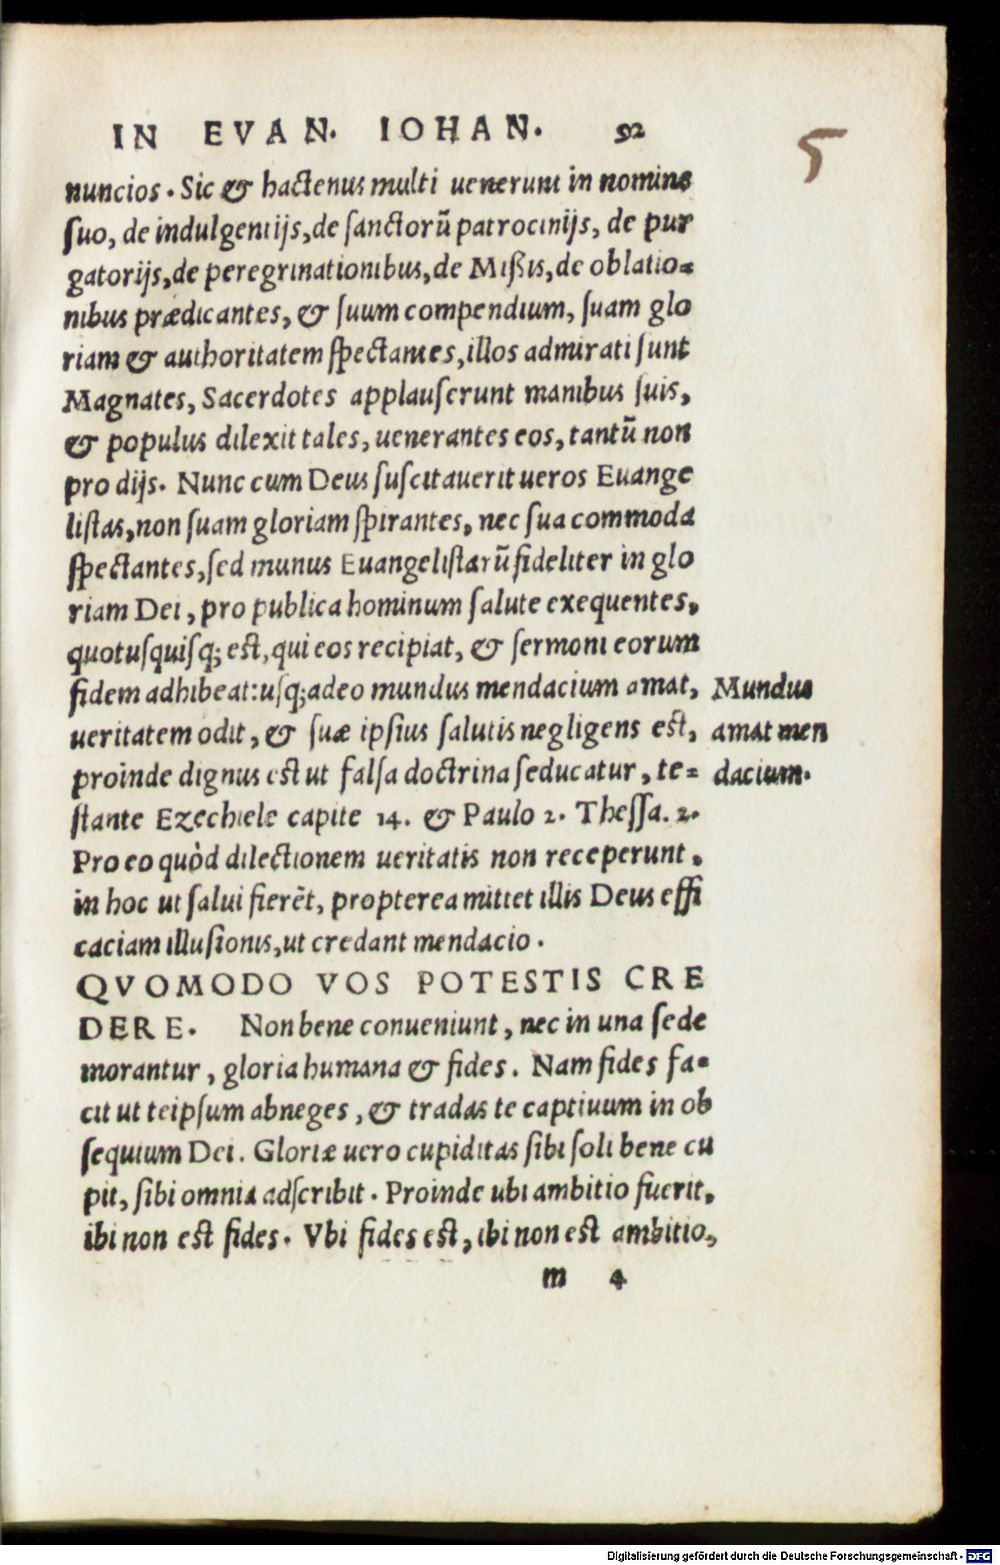 IN EVAN. IOHAN. 92
5
nuncios. Sic & hactenus multi uenerunt in nomine
ſuo, de indulgentijs, de ſanctorũ patrocinijs, de pur
gatorijs, de peregrinationibus, de Mißis, de oblatio=
nibus prædicantes, & ſuum compendium, ſuam glo
riam & authoritatem ſpectantes, illos admirati ſunt
Magnates, Sacerdotes applauſerunt manibus ſuis,
& populus dilexit tales, uenerantes eos, tantũ non
pro dijs. Nunc cum Deus ſuſcitauerit ueros Euange
liſtas, non ſuam gloriam ſpirantes, nec ſua commoda
ſpectantes, ſed munus Euangeliſtarũ fideliter in glo
riam Dei, pro publica hominum ſalute exequentes,
quotuſquiſq; est, qui eos recipiat, & ſermoni eorum
fidem adhibeat: uſq; adeo mundus mendacium amat,
ueritatem odit, & ſuæ ipſius ſalutis negligens est,
proinde dignus est ut falſa doctrina ſeducatur, te=
ſtante Ezechiele capite 14. & Paulo 2. Theſſa. 2.
Pro eo quòd dilectionem ueritatis non receperunt,
in hoc ut ſalui fierẽt, propterea mittet illis Deus effi
caciam illuſionis, ut credant mendacio.
Mundus
amat men
dacium.
QVOMODO VOS POTESTIS CRE
DERE. Non bene conueniunt, nec in una ſede
morantur, gloria humana & fides. Nam fides fa=
cit ut teipſum abneges, & tradas te captiuum in ob
ſequium Dei. Gloriæ uero cupiditas ſibi ſoli bene cu
pit, ſibi omnia adſcribit. Proinde ubi ambitio fuerit,
ibi non est fides. Vbi fides est, ibi non est ambitio,
m 4
Digitalisierung gefördert durch die Deutsche Forschungsgemeinschaft - DFG